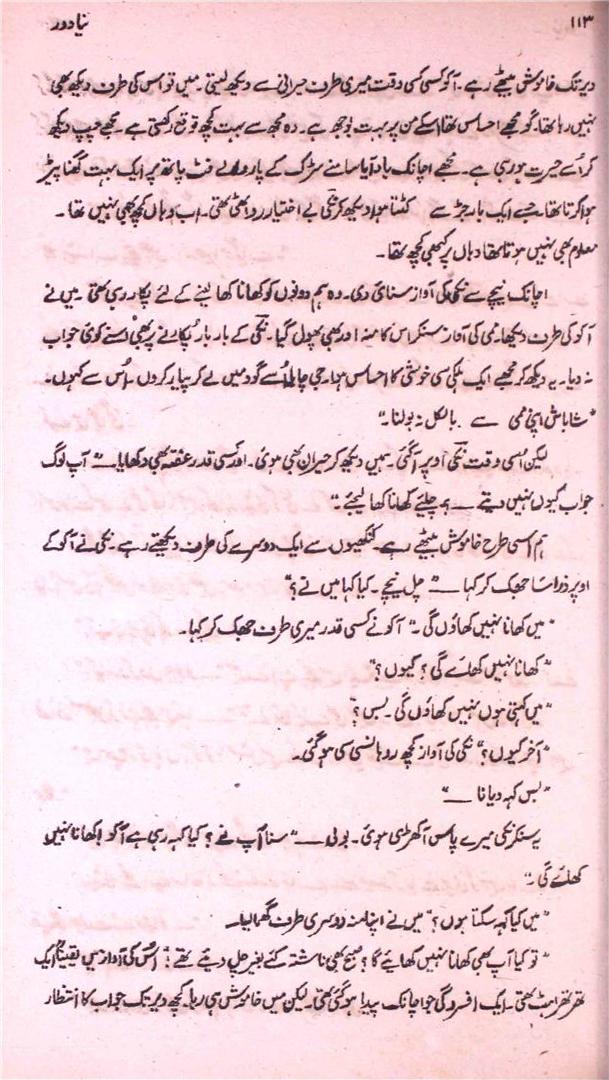 ۱۱۳ نیا دور
دیر تک خاموش بیٹھے رہے۔ آکو کسی کسی وقت میری طرف حیرانی سے دیکھ لیتی۔ میں تو اس کی طرف دیکھ بھی
نہیں رہا تھا۔ گو مجھے احساس تھا اسکے من پر بہت بوجھ ہے۔ وہ مجھ سے بہت کچھ توقع رکھتی ہے۔ مجھے چپ دیکھ
کر اُسے حیرت ہو رہی ہے۔ مجھے اچانک یاد آیا سامنے سڑک کے پار والے فٹ پاتھ پر ایک بہت گھنا پیڑ
ہوا کرتا تھا۔ جسے ایک بار جڑ سے کٹتا ہوا دیکھ کر نکّی بے اختیار رو اٹھی تھی۔ اب وہاں کچھ بھی نہیں تھا۔
معلوم بھی نہیں ہوتا تھا وہاں پر کبھی کچھ تھا۔
اچانک نیچے سے نکّی کی آواز سنائی دی۔ وہ ہم دونوں کو کھانا کھا لینے کے لئے پکار رہی تھی۔ میں نے
آکو کی طرف دیکھا۔ ممی کی آواز سنکر اس کا منہ اور بھی پھول گیا۔ نکّی کے بار بار پکارنے پر بھی اُسنے کوئی جواب
نہ دیا۔ یہ دیکھ کر مجھے ایک ہلکی سی خوشی کا احساس ہوا۔ جی چاہا اُسے گود میں لے کر پیار کروں۔ اُس سے کہوں۔
"شاباش اپنی ممی سے بالکل نہ بولنا۔"
لیکن اُسی وقت نکّی اوپر آ گئی۔ ہمیں دیکھ کر حیران بھی ہوئی۔ اور کسی قدر غصّہ بھی دکھایا —— "آپ لوگ
جواب کیوں نہیں دیتے —— چلئے کھانا کھا لیجئے۔"
ہم اسی طرح خاموش بیٹھے رہے۔ کنکھیوں سے ایک دوسرے کی طرف دیکھتے رہے۔ نکّی نے آکو کے
اوپر ذرا سا جھک کر کہا —— "چل نیچے۔ کیا کہا میں نے؟"
"میں کھانا نہیں کھاؤں گی۔" آکو نے کسی قدر میری طرف جھک کر کہا۔
"کھانا نہیں کھائے گی؟ کیوں؟"
"میں کہتی ہوں نہیں کھاؤں گی۔ بس؟
"آخر کیوں؟" نکّی کی آواز کچھ روہانسی سی ہو گئی۔
"بس کہہ دیا نا ——"
یہ سنکر نکّی میرے پاس آ کھڑی ہوئی۔ بولی —— "سنا آپ نے؟ کیا کہہ رہی ہے آکو! کھانا نہیں
کھائے گی۔"
"میں کیا کہہ سکتا ہوں؟" میں نے اپنا منہ دوسری طرف گھما لیا۔
"تو کیا آپ بھی کھانا نہیں کھائیے گا؟ صبح بھی ناشتہ کئے بغیر چل دیئے تھے؟" اُس کی آواز میں یقیناً ایک
تھرتھراہٹ تھی۔ ایک افسردگی جو اچانک پیدا ہو گئی تھی۔ لیکن میں خاموش ہی رہا۔ کچھ دیر تک جواب کا انتظار